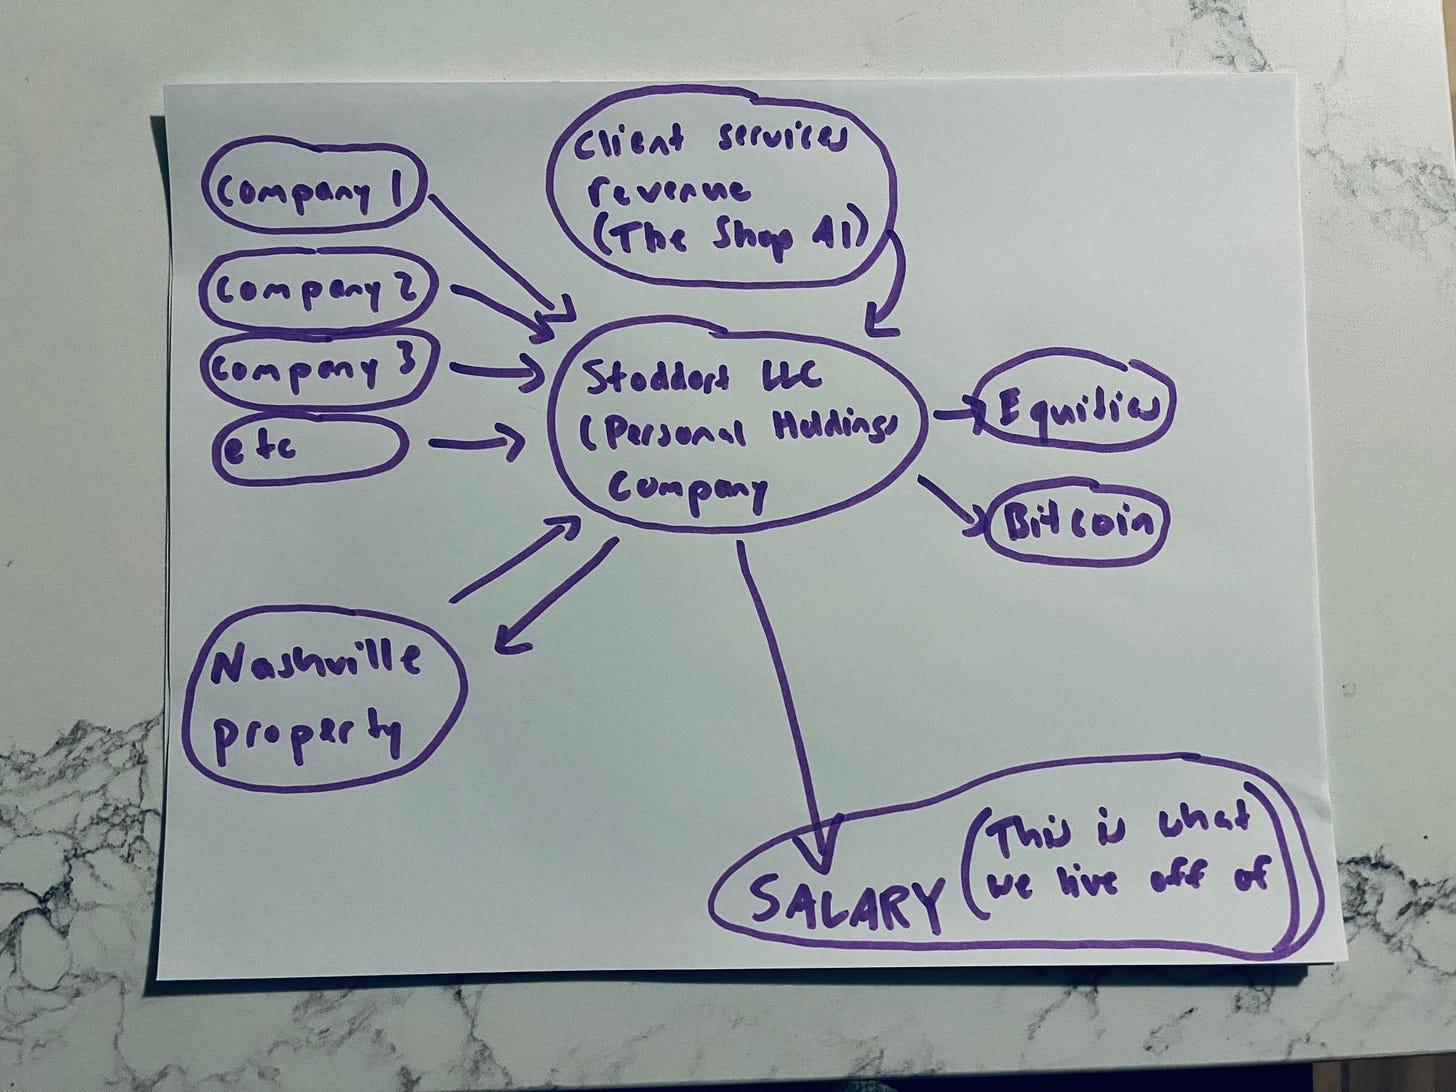 Company 1
Company 2
Company 3
etc
Client services
revenue
(The Shop AI)
Stoddart LLC
(Personal Holdings
Company
Equities
Bitcoin
Nashville
property
SALARY
(This is what
we live off of)